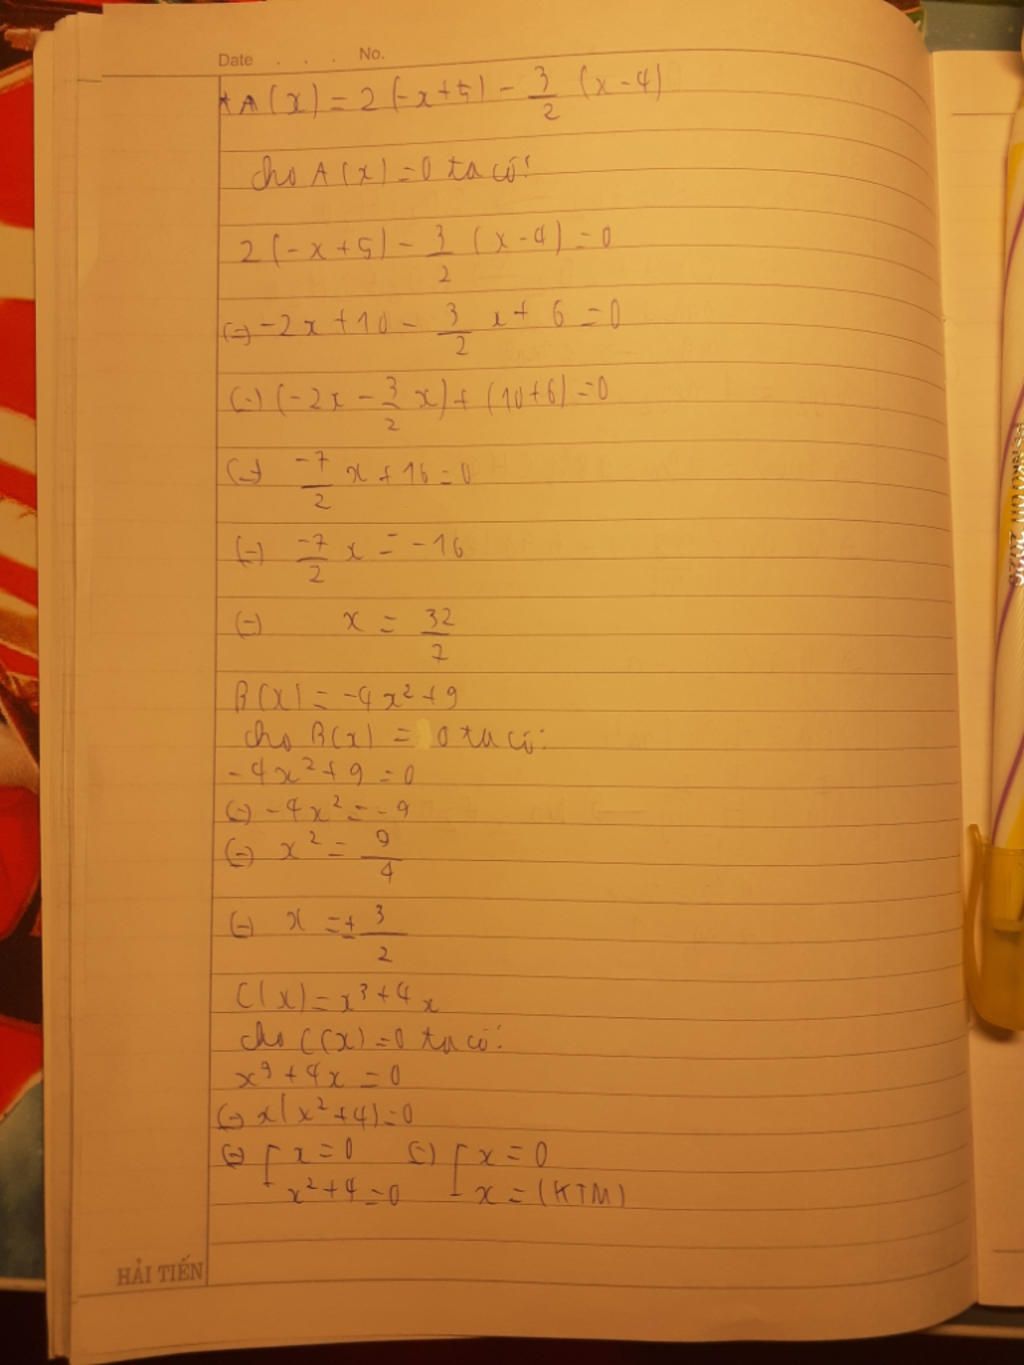 Date . . . . No.
* A(x) = 2(-x+5) - 3/2 (x-4)
cho A(x) = 0 ta có:
2(-x+5) - 3/2 (x-4) = 0
(=) -2x + 10 - 3/2 x + 6 = 0
(=) (-2x - 3/2 x) + (10+6) = 0
(=) -7/2 x + 16 = 0
(=) -7/2 x = -16
(=) x = 32/7
B(x) = -4x² + 9
cho B(x) = 0 ta có:
-4x² + 9 = 0
(=) -4x² = -9
(=) x² = 9/4
(=) x = ± 3/2
C(x) = x³ + 4x
cho C(x) = 0 ta có:
x³ + 4x = 0
(=) x(x² + 4) = 0
(=) [ x = 0 (=) [ x = 0
x² + 4 = 0 x = (KTM)
HẢI TIẾN